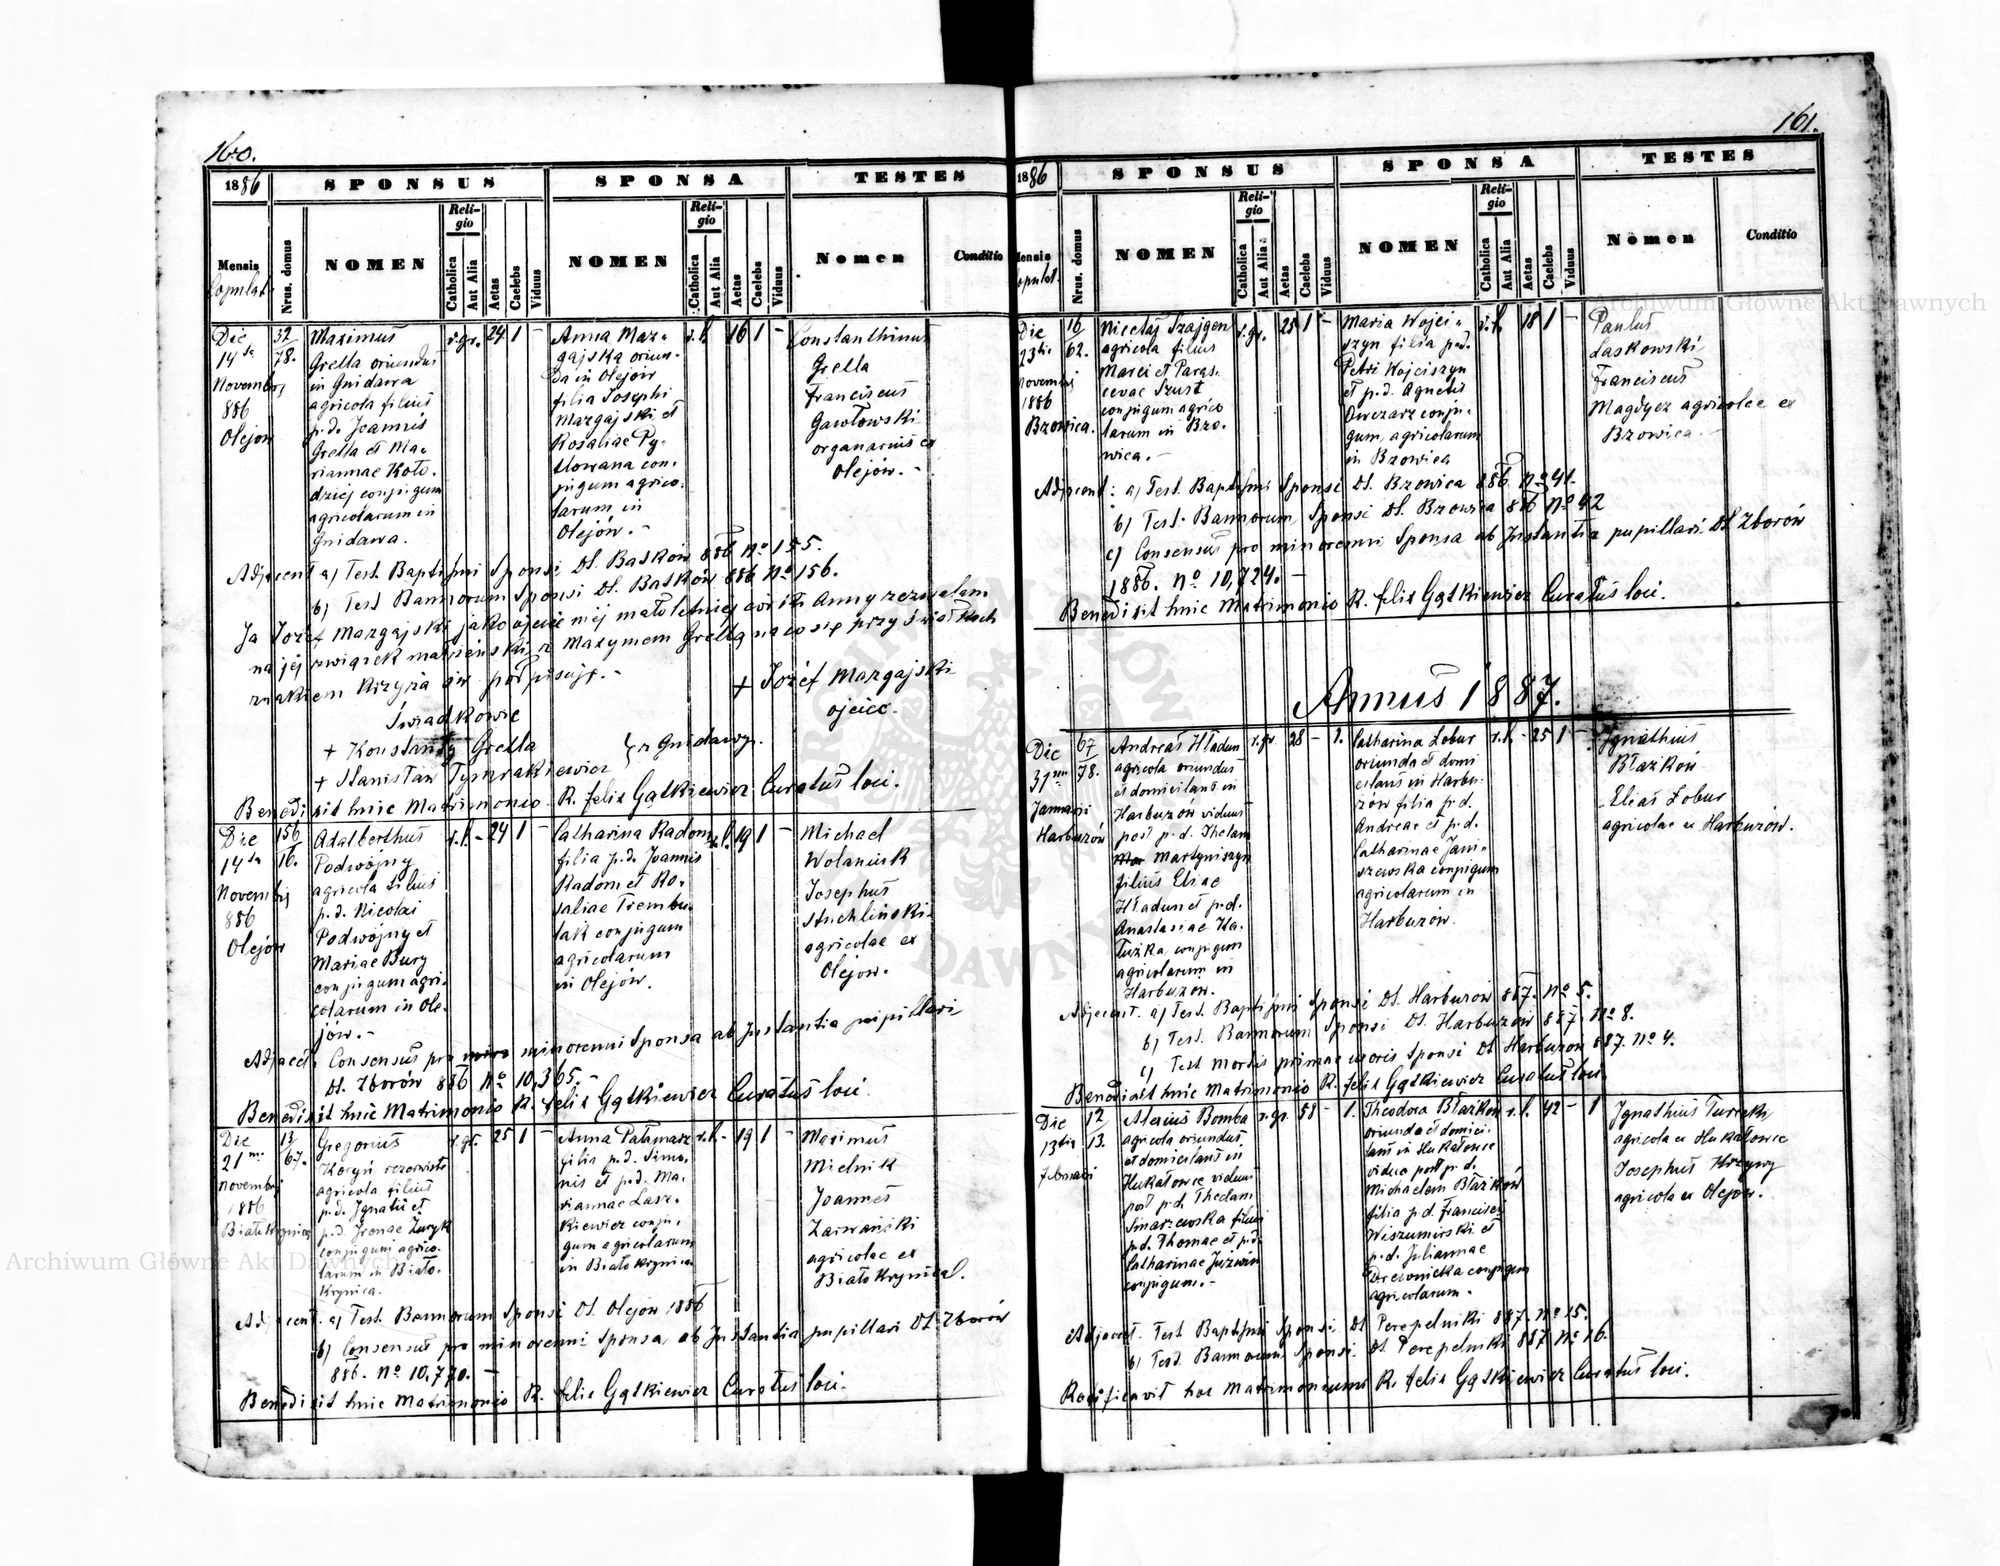 160.
1886
SPONSUS
SPONSA
TESTES
Mensis
Copulat.
Nrus. domus
NOMEN
Religio
Catholica
Aut Alia
Aetas
Caelebs
Viduus
NOMEN
Religio
Catholica
Aut Alia
Aetas
Caelebs
Viduus
Nomen
Conditio
Die
14ta
Novembris
886
Olejow
32
78.
Maximus
Grella oriundus
in Gnidawa
agricola filius
p.d. Joannis
Grella et Ma-
riannae Koło-
dziej conjugum
agricolarum in
Gnidawa.
r.gr. 24 1 -
Anna Maz-
gajska oriun-
da in Olejów
filia Josephi
Mazgajski et
Rosaliae Py-
tlowana con-
jugum agrico-
larum in
Olejów. -
r.l. 16 1 -
Constanthinus
Grella
Franciscus
Gawłowski
organarius ex
Olejów. -
Adjacent a) Test. Baptismi Sponsi Dt. Batków 886 No 155.
b) Test Bannorum Sponsi Dt. Batków 886 No 156.
Ja Józef Mazgajski jako ojciec mej małoletniej córki Anny zezwalam
na jej związek małżeński z Maxymem Grellą na co się przy świadkach
znakiem krzyża św podpisuję. -
+ Józef Mazgajski
ojciec.
Świadkowie
+ Konstanty Grella
+ Stanisław Tymrakiewicz
z Gnidawy.
Benedixit huic Matrimonio R. Felix Gątkiewicz Curatus loci.
Die
14ta
Novembris
886
Olejów
156
16.
Adalberthus
Podwójny
agricola filius
p.d. Nicolai
Podwójny et
Mariae Bury
conjugum agri-
colarum in Ole-
jów. -
r.l. - 24 1 -
Catharina Radom
filia p.d. Joannis
Radom et Ro-
saliae Trembu-
lak conjugum
agricolarum
in Olejów.
r.l. 19 1 -
Michael
Wolaniuk
Josephus
Suchliński
agricolae ex
Olejow.
Adjacet. Consensus pro minorenni Sponsa ab Instantia pupillari
Dt. Zborów 886 No 10,365. -
Benedixit huic Matrimonio R. Felix Gątkiewicz Curatus loci.
Die
21ma
Novembris
1886
Białokrynica
13
67.
Gregorius
Koryń rezerwista
agricola filius
p.d. Ignatii et
p.d. Irenae Żuryk
conjugum agrico-
larum in Biało-
krynica.
r.gr. 25 1
Anna Pałamarz
filia p.d. Simo-
nis et p.d. Ma-
riannae Lasz-
kiewicz conju-
gum agricolarum
in Białokrynica
r.l. - 19 1 -
Maximus
Mielnik
Joannes
Zarwański
agricolae ex
Białokrynica.
Adjacent. a) Test. Bannorum Sponsi Dt. Olejów 1886
b) Consensus pro minorenni Sponsa ab Instantia pupillari Dt. Zborów
886. No 10,770. -
Benedixit huic Matrimonio R. Felix Gątkiewicz Curatus loci.
161.
1886
SPONSUS
SPONSA
TESTES
Mensis
Copulat.
Nrus. domus
NOMEN
Religio
Catholica
Aut Alia
Aetas
Caelebs
Viduus
NOMEN
Religio
Catholica
Aut Alia
Aetas
Caelebs
Viduus
Nomen
Conditio
Die
23tia
Novembris
1886
Bzowica.
16
62.
Nicetas Szajgen
agricola filius
Marci et Paras-
cevae Szust
conjugum agrico
larum in Bzo-
wica. -
r.gr. 25 1 -
Maria Wojci-
szyn filia p.d.
Petri Wojciszyn
et p.d. Agnetis
Owczarz conju-
gum, agricolarum
in Bzowica
r.l. 18 1 -
Paulus
Laskowski
Franciscus
Magdycz agricolae ex
Bzowica. -
Adjacent: a) Test. Baptismi Sponsi Dt. Bzowica 886. No 41.
b) Test. Bannorum Sponsi Dt. Bzowica 886 No 42
c) Consensus pro minorenni Sponsa ab Instantia pupillari Dt. Zborów
1886. No 10,724. -
Benedixit huic Matrimonio R. Felix Gątkiewicz Curatus loci.
Annus 1887.
Die
31ma
Januari
Harbuzów
67
78.
Andreas Hładun
agricola oriundus
et domicilans in
Harbuzów viduus
post p.d. Theclam
Martyniszyn
filius Eliae
Hładun et p.d.
Anastasiae Ka-
łużka conjugum
agricolarum in
Harbuzow.
r.gr. 28 - 1.
Catharina Łobur
oriunda et domi
cilans in Harbu-
zow filia p.d.
Andreae et p.d.
Catharinae Jani-
szewska conjugum
agricolarum in
Harbuzów.
r.l. - 25 1 -
Ignathius
Błażków
Elias Łobur
agricolae ex Harbuzów.
Adjacent. a) Test. Baptismi Sponsi Dt. Harbuzów 887. No 5.
b) Test. Bannorum Sponsi Dt. Harbuzów 887 No 8.
c) Test mortis primae uxoris Sponsi Dt Harbuzow 887. No 4.
Benedixit huic Matrimonio R. Felix Gątkiewicz Curatus loci.
Die
13tia
Februari
12
13.
Alexius Bomba
agricola oriundus
et domicilans in
Hukałowce viduus
post p.d. Theclam
Smarzewska filius
p.d. Thomae et p.d.
Catharinae Juzwin
conjugum. -
r.gr. 58 - 1.
Theodora Błażków
oriunda et domici-
lans in Hukałowce
vidua post p.d.
Michaelem Błażków
filia p.d. Francisci
Wiszumirski et
p.d. Juliannae
Drewnicka conjugum
agricolarum.
r.l. 42 - 1
Ignathius Turecki
agricola ex Hukałowce
Josephus Krzywy
agricola ex Olejów.
Adjacent. Test. Baptismi Sponsi Dt Perepelniki 887. No 15.
b) Test. Bannorum Sponsi Dt. Perepelniki 887 No 16.
Ratificavit hoc Matrimonium R. Felix Gątkiewicz Curatus loci.
Archiwum Główne Akt Dawnych
Archiwum Główne Akt Dawnych